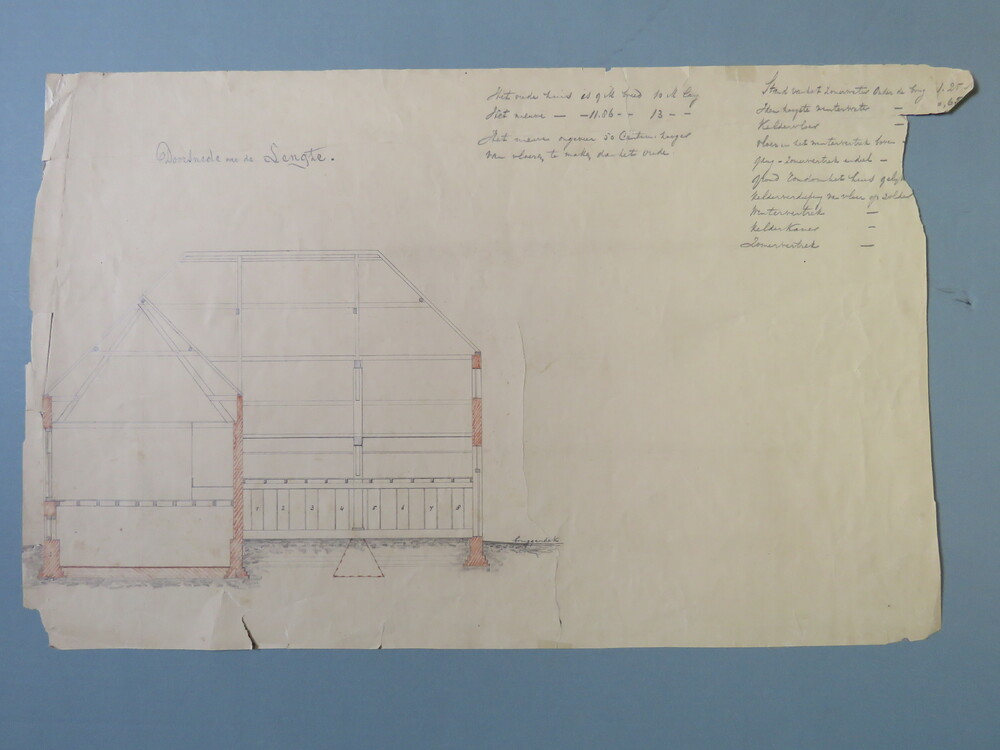 Doorsnede over de Lengte.
Het oude huis is 9 M breed 10 M lang
Het nieuwe — — 11.86 - - 13 - -
Het nieuwe ongeveer 50 Centim. hooger
van vloer te maken dan het oude
Stand van het Zomerwater onder de 1.25
Idem hoogste winterwater — 0.65
Keldervloer —
vloer in het wintervertrek
gang - Zomervertrek en dak —
grond rondom het huis
Kelderverdieping van vloer op zolder
Wintervertrek —
Kelderkamer —
Zomervertrek —
1 2 3 4 5 6 7 8